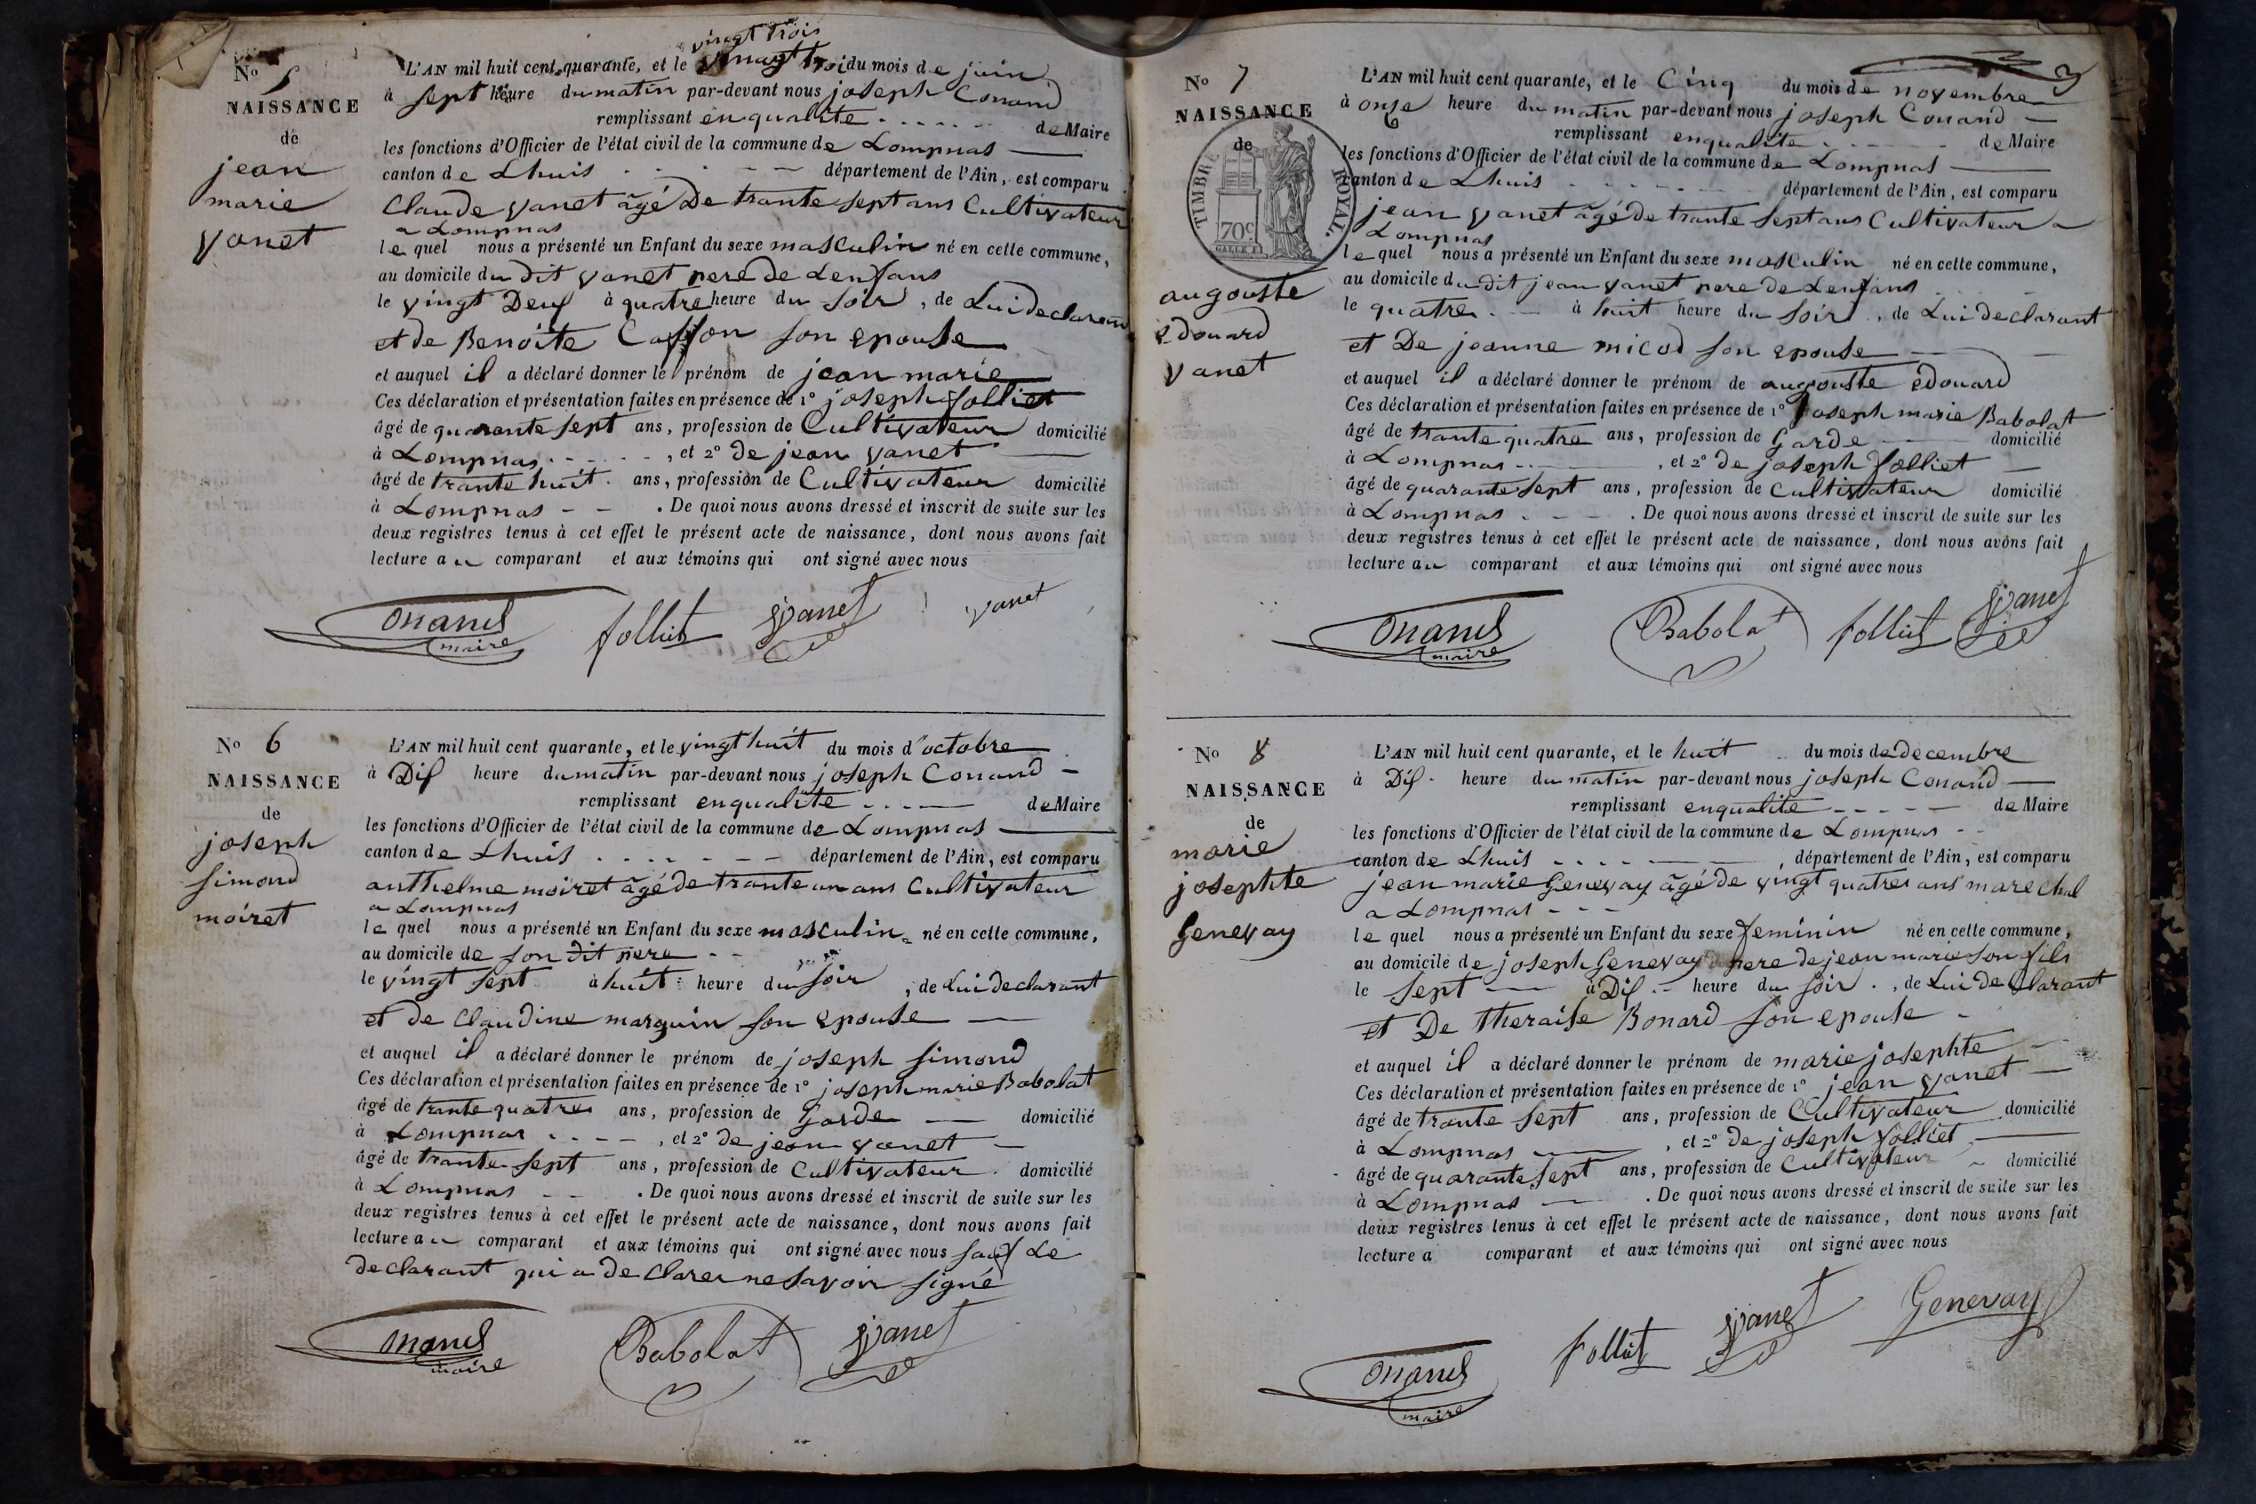 vingt trois
No 5
NAISSANCE
de
jean
marie
vanet
L'AN mil huit cent quarante, et le vingt troi du mois de juin
à sept heure du matin par-devant nous joseph Conand
remplissant en qualite de Maire
les fonctions d'Officier de l'état civil de la commune de Lompnas
canton de Lhuis département de l'Ain, est comparu
Claude vanet âgé De trante sept ans Cultivateur
a Lompnas
le quel nous a présenté un Enfant du sexe masculin né en cette commune,
au domicile du dit vanet pere de Lenfans
le vingt Deux à quatre heure du soir, de Lui declarant
et de Benoite Caffon son epouse
et auquel il a déclaré donner le prénom de jean marie
Ces déclaration et présentation faites en présence de 1o joseph folliet
âgé de quarante sept ans, profession de Cultivateur domicilié
à Lompnas, et 2o de jean vanet
âgé de trante huit ans, profession de Cultivateur domicilié
à Lompnas. De quoi nous avons dressé et inscrit de suite sur les
deux registres tenus à cet effet le présent acte de naissance, dont nous avons fait
lecture au comparant et aux témoins qui ont signé avec nous
Conand maire folliet jvanet vanet
No 6
NAISSANCE
de
joseph
simond
moiret
L'AN mil huit cent quarante, et le vingt huit du mois d'octobre
à Dix heure du matin par-devant nous joseph Conand
remplissant en qualite de Maire
les fonctions d'Officier de l'état civil de la commune de Lompnas
canton de Lhuis département de l'Ain, est comparu
anthelme moiret âgé de trante un ans Cultivateur
a Lompnas
le quel nous a présenté un Enfant du sexe masculin né en cette commune,
au domicile de son dit pere
le vingt sept à huit heure du soir, de Lui declarant
et de Claudine marguin son epouse
et auquel il a déclaré donner le prénom de joseph simond
Ces déclaration et présentation faites en présence de 1o joseph marie Babolat
âgé de trante quatre ans, profession de Garde domicilié
à Lompnas, et 2o de jean vanet
âgé de trante sept ans, profession de Cultivateur domicilié
à Lompnas. De quoi nous avons dressé et inscrit de suite sur les
deux registres tenus à cet effet le présent acte de naissance, dont nous avons fait
lecture au comparant et aux témoins qui ont signé avec nous sauf Le
declarant qui a declarer ne savoir signé
Conand maire Babolat jvanet
3
No 7
NAISSANCE
de
TIMBRE ROYAL.
70c
augouste
edouard
vanet
L'AN mil huit cent quarante, et le Cinq du mois de novembre
à onze heure du matin par-devant nous joseph Conand
remplissant en qualite de Maire
les fonctions d'Officier de l'état civil de la commune de Lompnas
canton de Lhuis département de l'Ain, est comparu
jean vanet âgé de trante sept ans Cultivateur a
Lompnas
le quel nous a présenté un Enfant du sexe masculin né en cette commune,
au domicile du dit jean vanet pere de Lenfans
le quatre à huit heure du soir, de Lui declarant
et De jeanne micod son epouse
et auquel il a déclaré donner le prénom de augouste edouard
Ces déclaration et présentation faites en présence de 1o joseph marie Babolat
âgé de trante quatre ans, profession de Garde domicilié
à Lompnas, et 2o de joseph folliet
âgé de quarante sept ans, profession de Cultivateur domicilié
à Lompnas. De quoi nous avons dressé et inscrit de suite sur les
deux registres tenus à cet effet le présent acte de naissance, dont nous avons fait
lecture au comparant et aux témoins qui ont signé avec nous
Conand maire Babolat folliet jvanet
No 8
NAISSANCE
de
marie
josephte
Genevay
L'AN mil huit cent quarante, et le huit du mois de decembre
à Dix heure du matin par-devant nous joseph Conand
remplissant en qualite de Maire
les fonctions d'Officier de l'état civil de la commune de Lompnas
canton de Lhuis, département de l'Ain, est comparu
jean marie Genevay âgé De vingt quatre ans marechal
a Lompnas
le quel nous a présenté un Enfant du sexe feminin né en cette commune,
au domicile de joseph Genevay pere de jean marie son fils
le sept à Dix heure du soir, de Lui de Clarant
et De theraise Bonard son epouse
et auquel il a déclaré donner le prénom de marie josephte
Ces déclaration et présentation faites en présence de 1o jean vanet
âgé de trante sept ans, profession de Cultivateur domicilié
à Lompnas, et 2o de joseph folliet
âgé de quarante sept ans, profession de Cultivateur domicilié
à Lompnas. De quoi nous avons dressé et inscrit de suite sur les
deux registres tenus à cet effet le présent acte de naissance, dont nous avons fait
lecture a comparant et aux témoins qui ont signé avec nous
Conand maire folliet jvanet Genevay